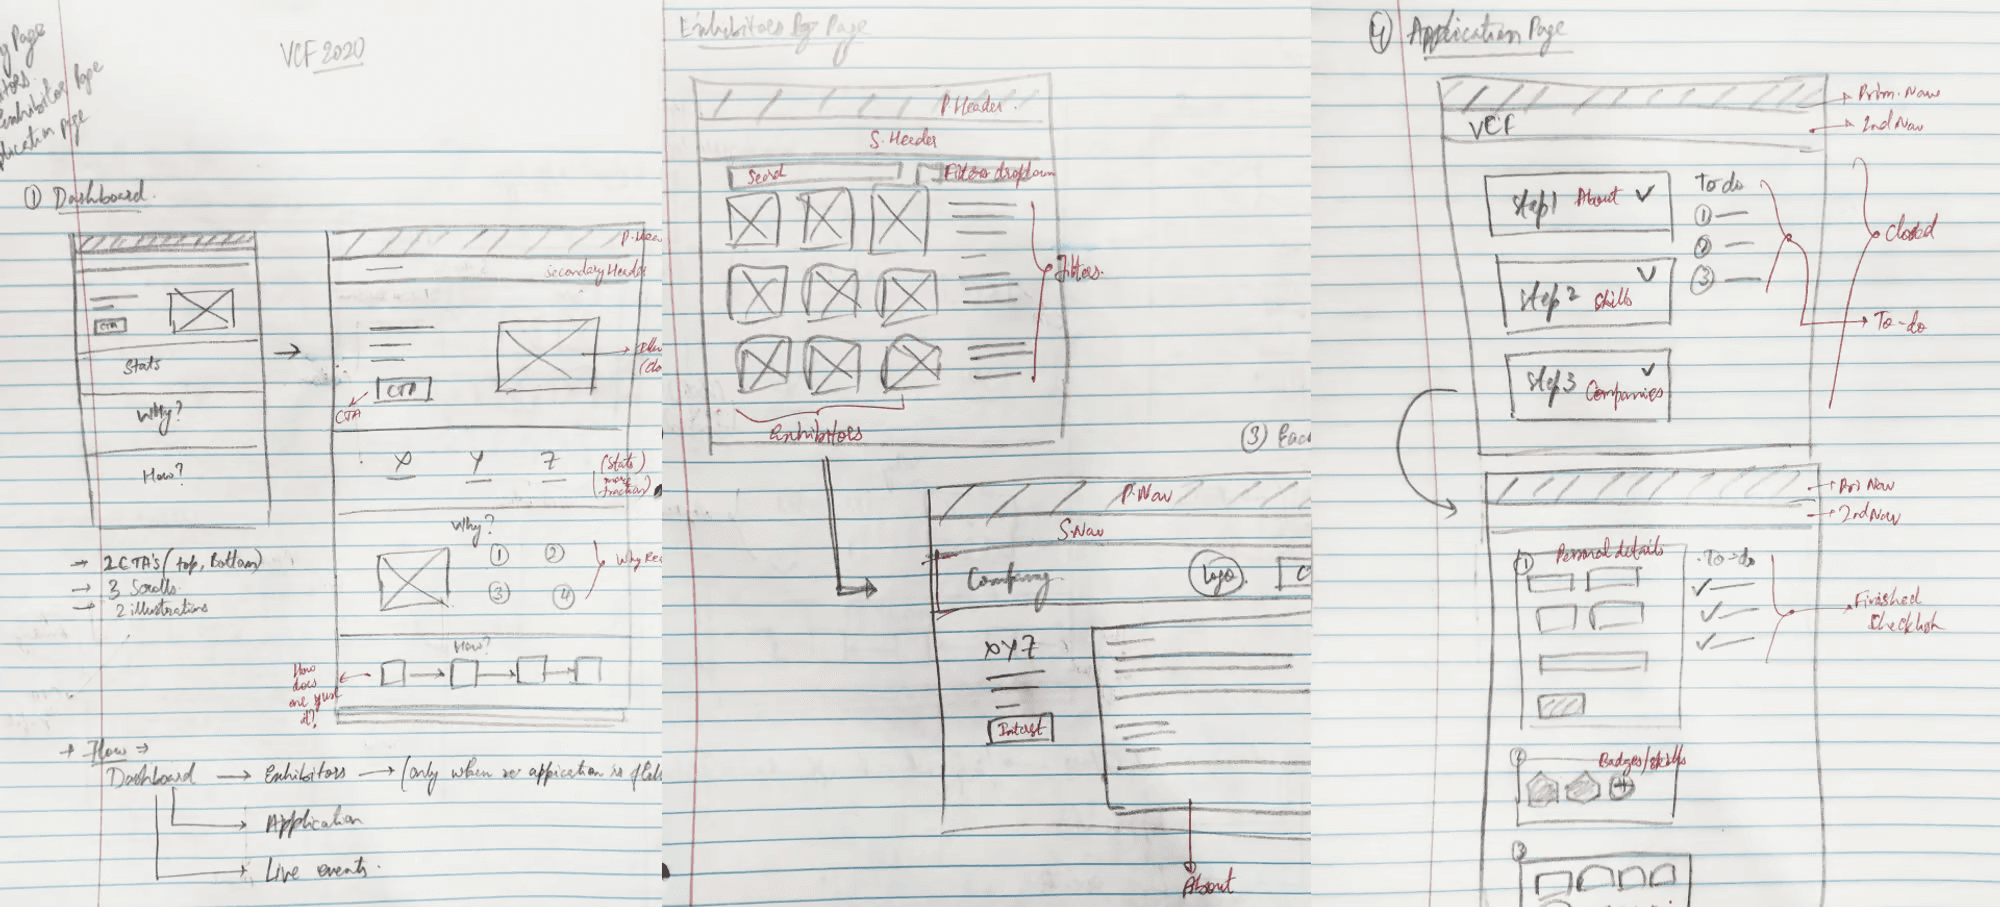 Page
Page
page
VCF 2020
① Dashboard.
Secondary Header
CTA
Stats
CTA
CTA
Why?
X Y Z (Stats)
How?
Why?
→ 2 CTA's (top, Bottom)
→ 3 Scrolls
→ 2 illustrations
① ②
③ ④
How?
How
does
one
it?
→ Flow ⇒
Dashboard → Exhibitors → (only when application is
Application
Live events.
Exhibitors Page
P.Header.
S.Header
Search
Filters dropdown
Filters.
Exhibitors
③
P.Nav
S.Nav
Company
Logo
XYZ
Interest
About
④ Application Page
Prim. Nav
VCF
2nd Nav
Step 1 About ✓
To do
①
②
③
Closed
Step 2 Skills ✓
To-do
Step 3 Companies ✓
Pri Nav
2nd Nav
① Personal details
To-do
✓
✓
✓
Finished
Checklist
② Badges/skills
+
③